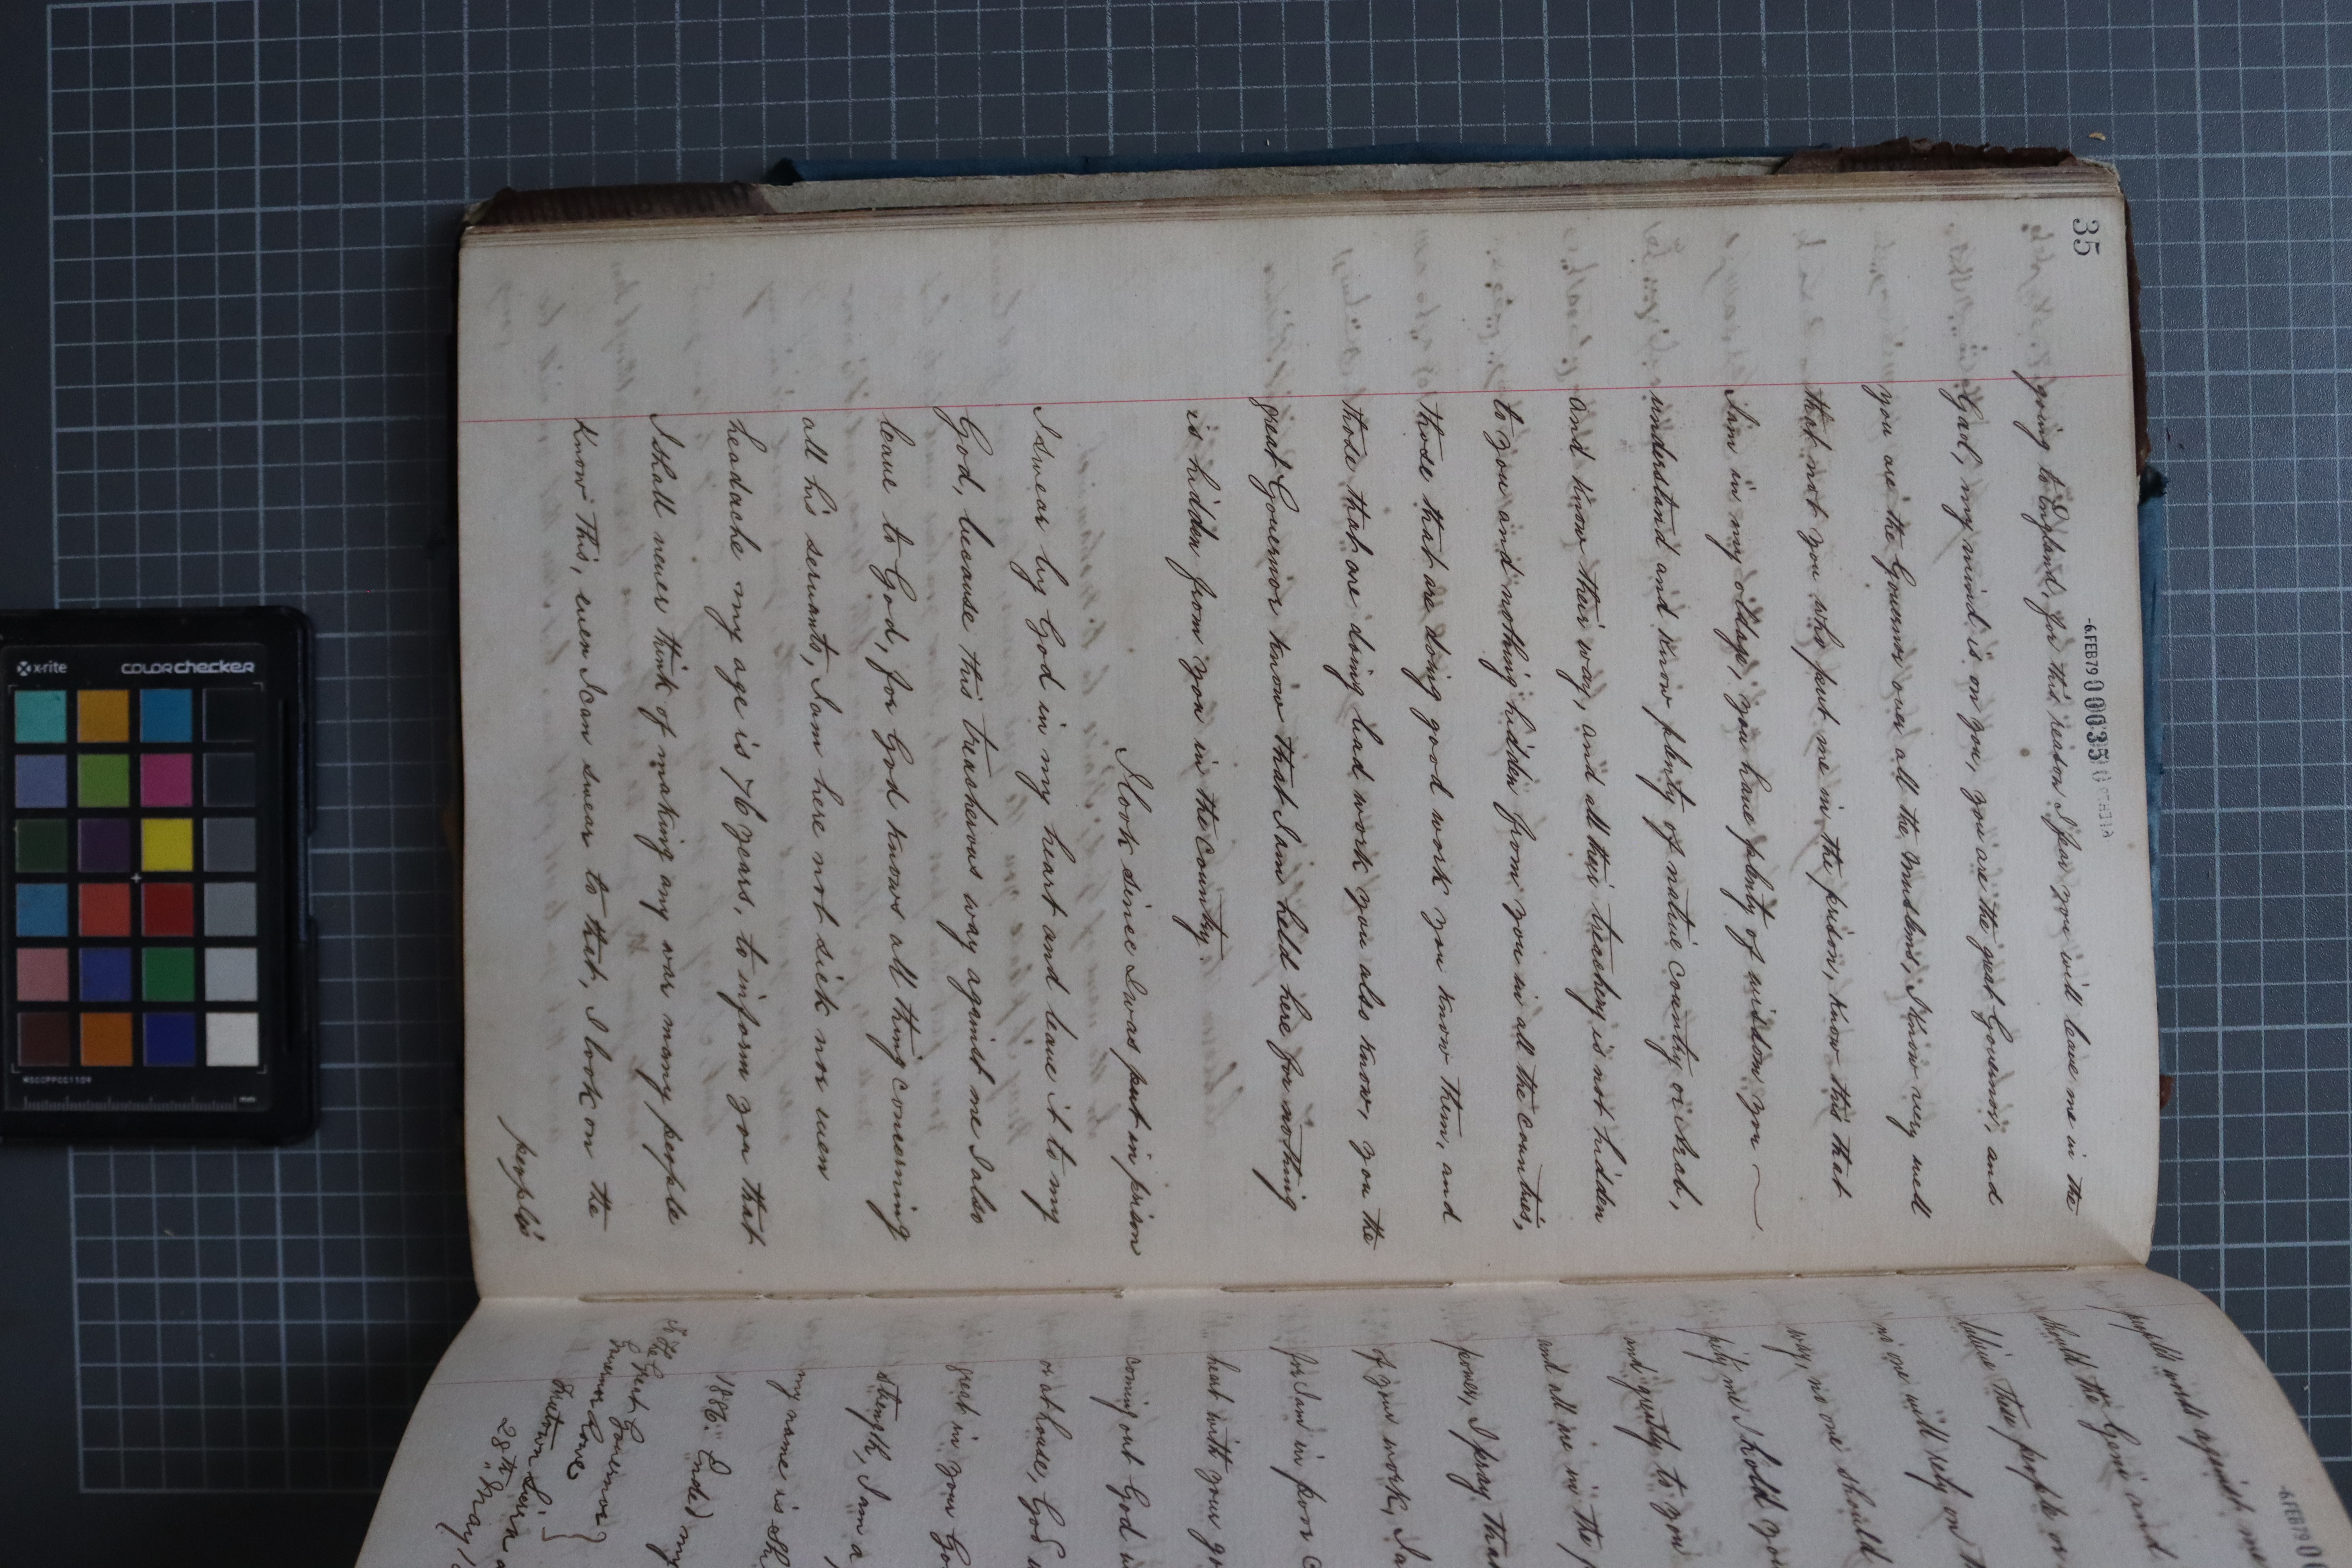 35
-6.FEB79 000350
going to England, for this reason I fear you will leave me in the
Gaol, my mind is on you, you are the great Governor, and
you are the Governor over all the Muslems, I know very well
that not you who put me in the prison, know this that
I am in my oldage, you have plenty of wisdom you
understand and know plenty of native country or Arab,
and know their way, and all their treachery is not hidden
to you and nothing hidden from you in all the countries,
those that are doing good work you know them, and
those that are doing bad work you also know, you the
great Governor know that I am held here for nothing
is hidden from you in the country.
I look since I was put in prison
I swear by God in my heart and leave it to my
God, because this treacherous way against me I also
leave to God, for God knows all thing concerning
all his servants, I am here not sick nor even
headache my age is 76 years, to inform you that
I shall never think of making any war many people
know this, even I can swear to that, I look on the
people's
-6.FEB79 00
people's words against me
should the Geni and
believe these people or
no one will rely on
way, no one should
pity me I hold you
and greatly to you
and all me in the
power, I pray that
of your work, I a
for I am in poor
heart with your
coming out God
or at house, God
great in your Go
strength, I am a
my name is Sh
1886. Ended my
To The Great Governor
Governor Rowe
Freetown Sierra
28th May
x-rite
colorchecker
MSCCPPCC1104
mm